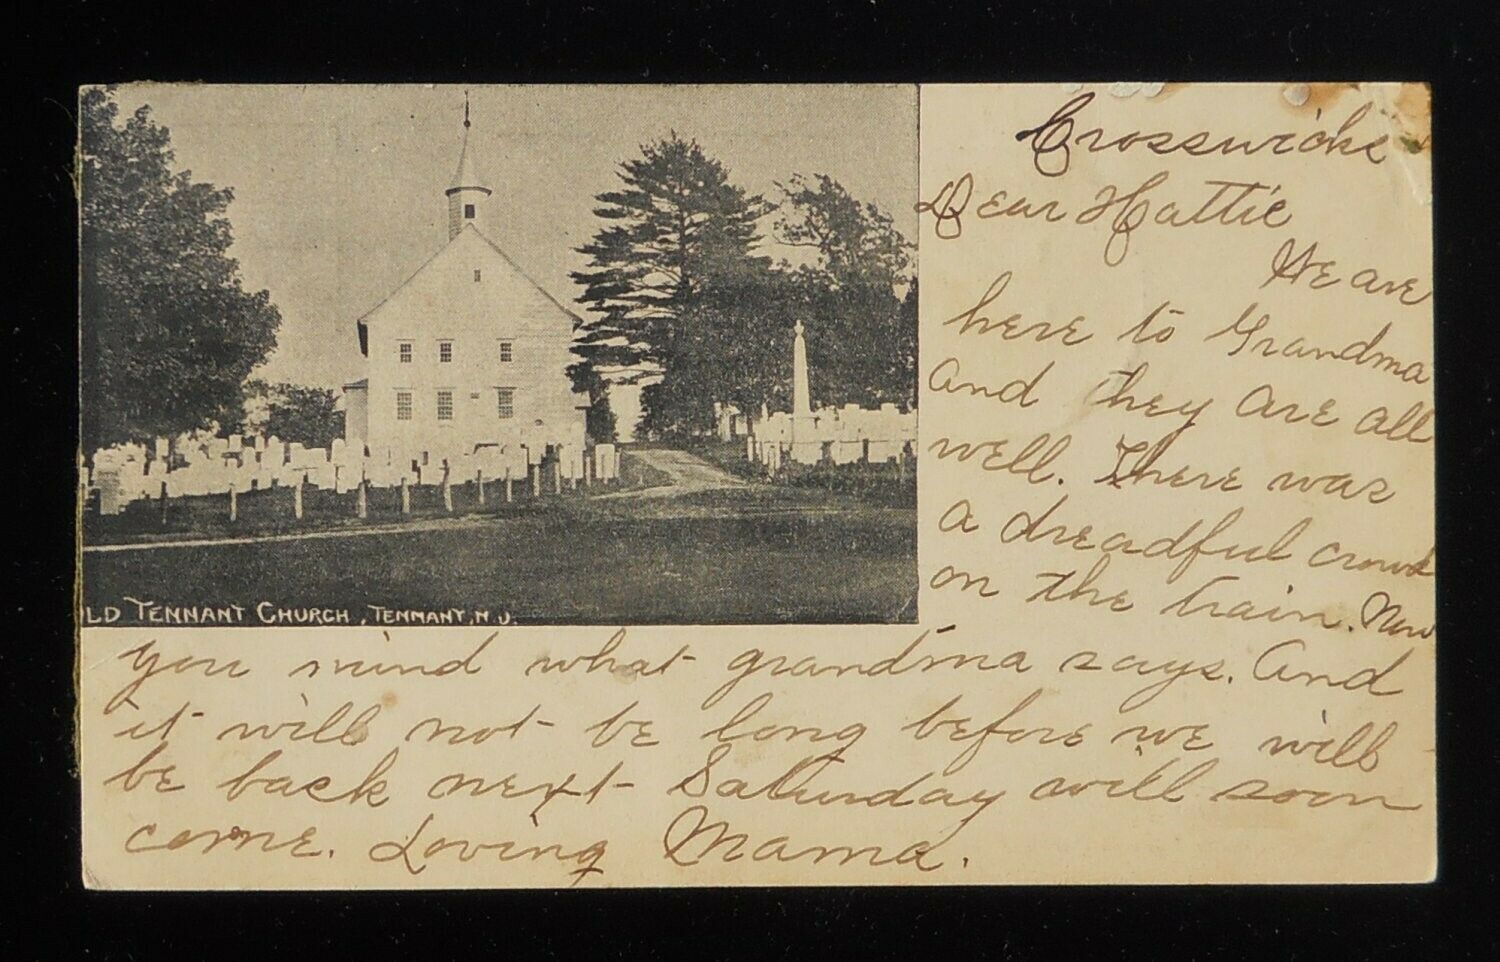 Crosswicks
Dear Hattie
We are
here to Grandma
and they are all
well. There was
a dreadful crowd
on the train. Now
you mind what grandma says. And
it will not be long before we will
be back next Saturday will soon
come. Loving Mama.
LD TENNANT CHURCH, TENNANT, N.J.